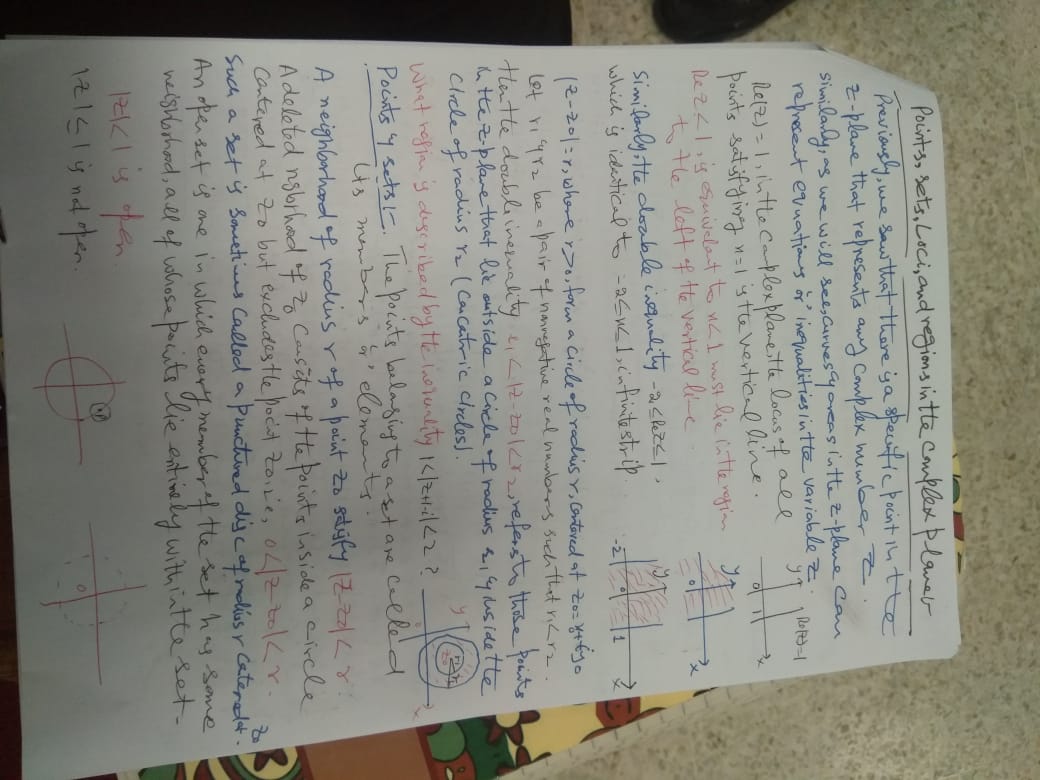 Points, sets, Loci, and regions in the complex plane
Previously, we saw that there is a specific point in the
z-plane that represents any complex number z.
similarly, as we will see, curves & areas in the z-plane can
represent equations 'or' inequalities in the variable z.
Re(z) = 1, in the complex plane, the locus of all
points satisfying x=1 is the vertical line.
y Re(z)=1
0 1 x
Re z < 1, is equivalent to x<1 must lie in the region
to the left of the vertical line
y
0 x
Similarly, the double inequality -2 ≤ Re z ≤ 1,
which is identical to -2 ≤ x ≤ 1, infinite strip.
y
-2 0 1 x
|z-z0| = r, where r>0, form a circle of radius r, centered at z0 =
Let r1 & r2 be a pair of nonnegative real numbers such that r1<r2.
then the double inequality r1 < |z-z0| < r2, refers to those points
in the z-plane that lie outside a circle of radius r1 & inside the
circle of radius r2 (concentric circles).
y r1 r2
z0
0 x
What region is described by the inequality 1<|z+1-i|<2 ?
Points & sets:-. The points belonging to a set are called
its members 'or' elements.
A neighborhood of radius r of a point z0 satisfy |z-z0| < r.
A deleted ngbrhood of z0 consists of the points inside a circle
centered at z0 but excludes the point z0, i.e, 0<|z-z0|<r.
Such a set is sometimes called a punctured disc of radius r centered at z0.
An open set is one in which every member of the set has some
neighborhood, all of whose points lie entirely within the set-
|z|<1 is open.
|z| ≤ 1 is not open.
0